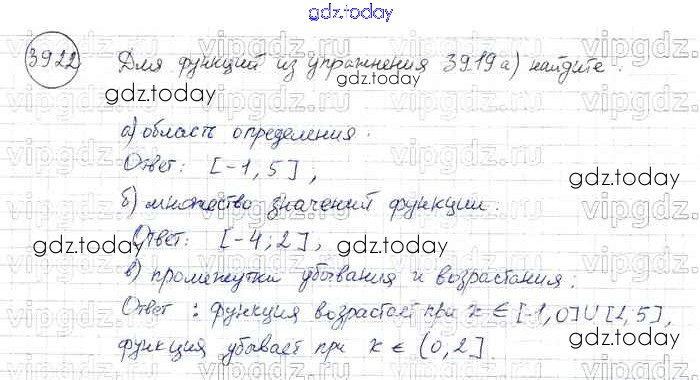 gdz.today
3922 Для функций из упражнения 3919 а) найдите:
gdz.today
а) область определения.
Ответ: [-1, 5],
gdz.today
б) множество значений функции.
gdz.today
Ответ: [-4; 2],
gdz.today
в) промежутки убывания и возрастания:
Ответ: функция возрастает при x ∈ [-1, 0] U [2, 5],
функция убывает при x ∈ (0, 2].
gdz.today
gdz.today
vipgdz.ru